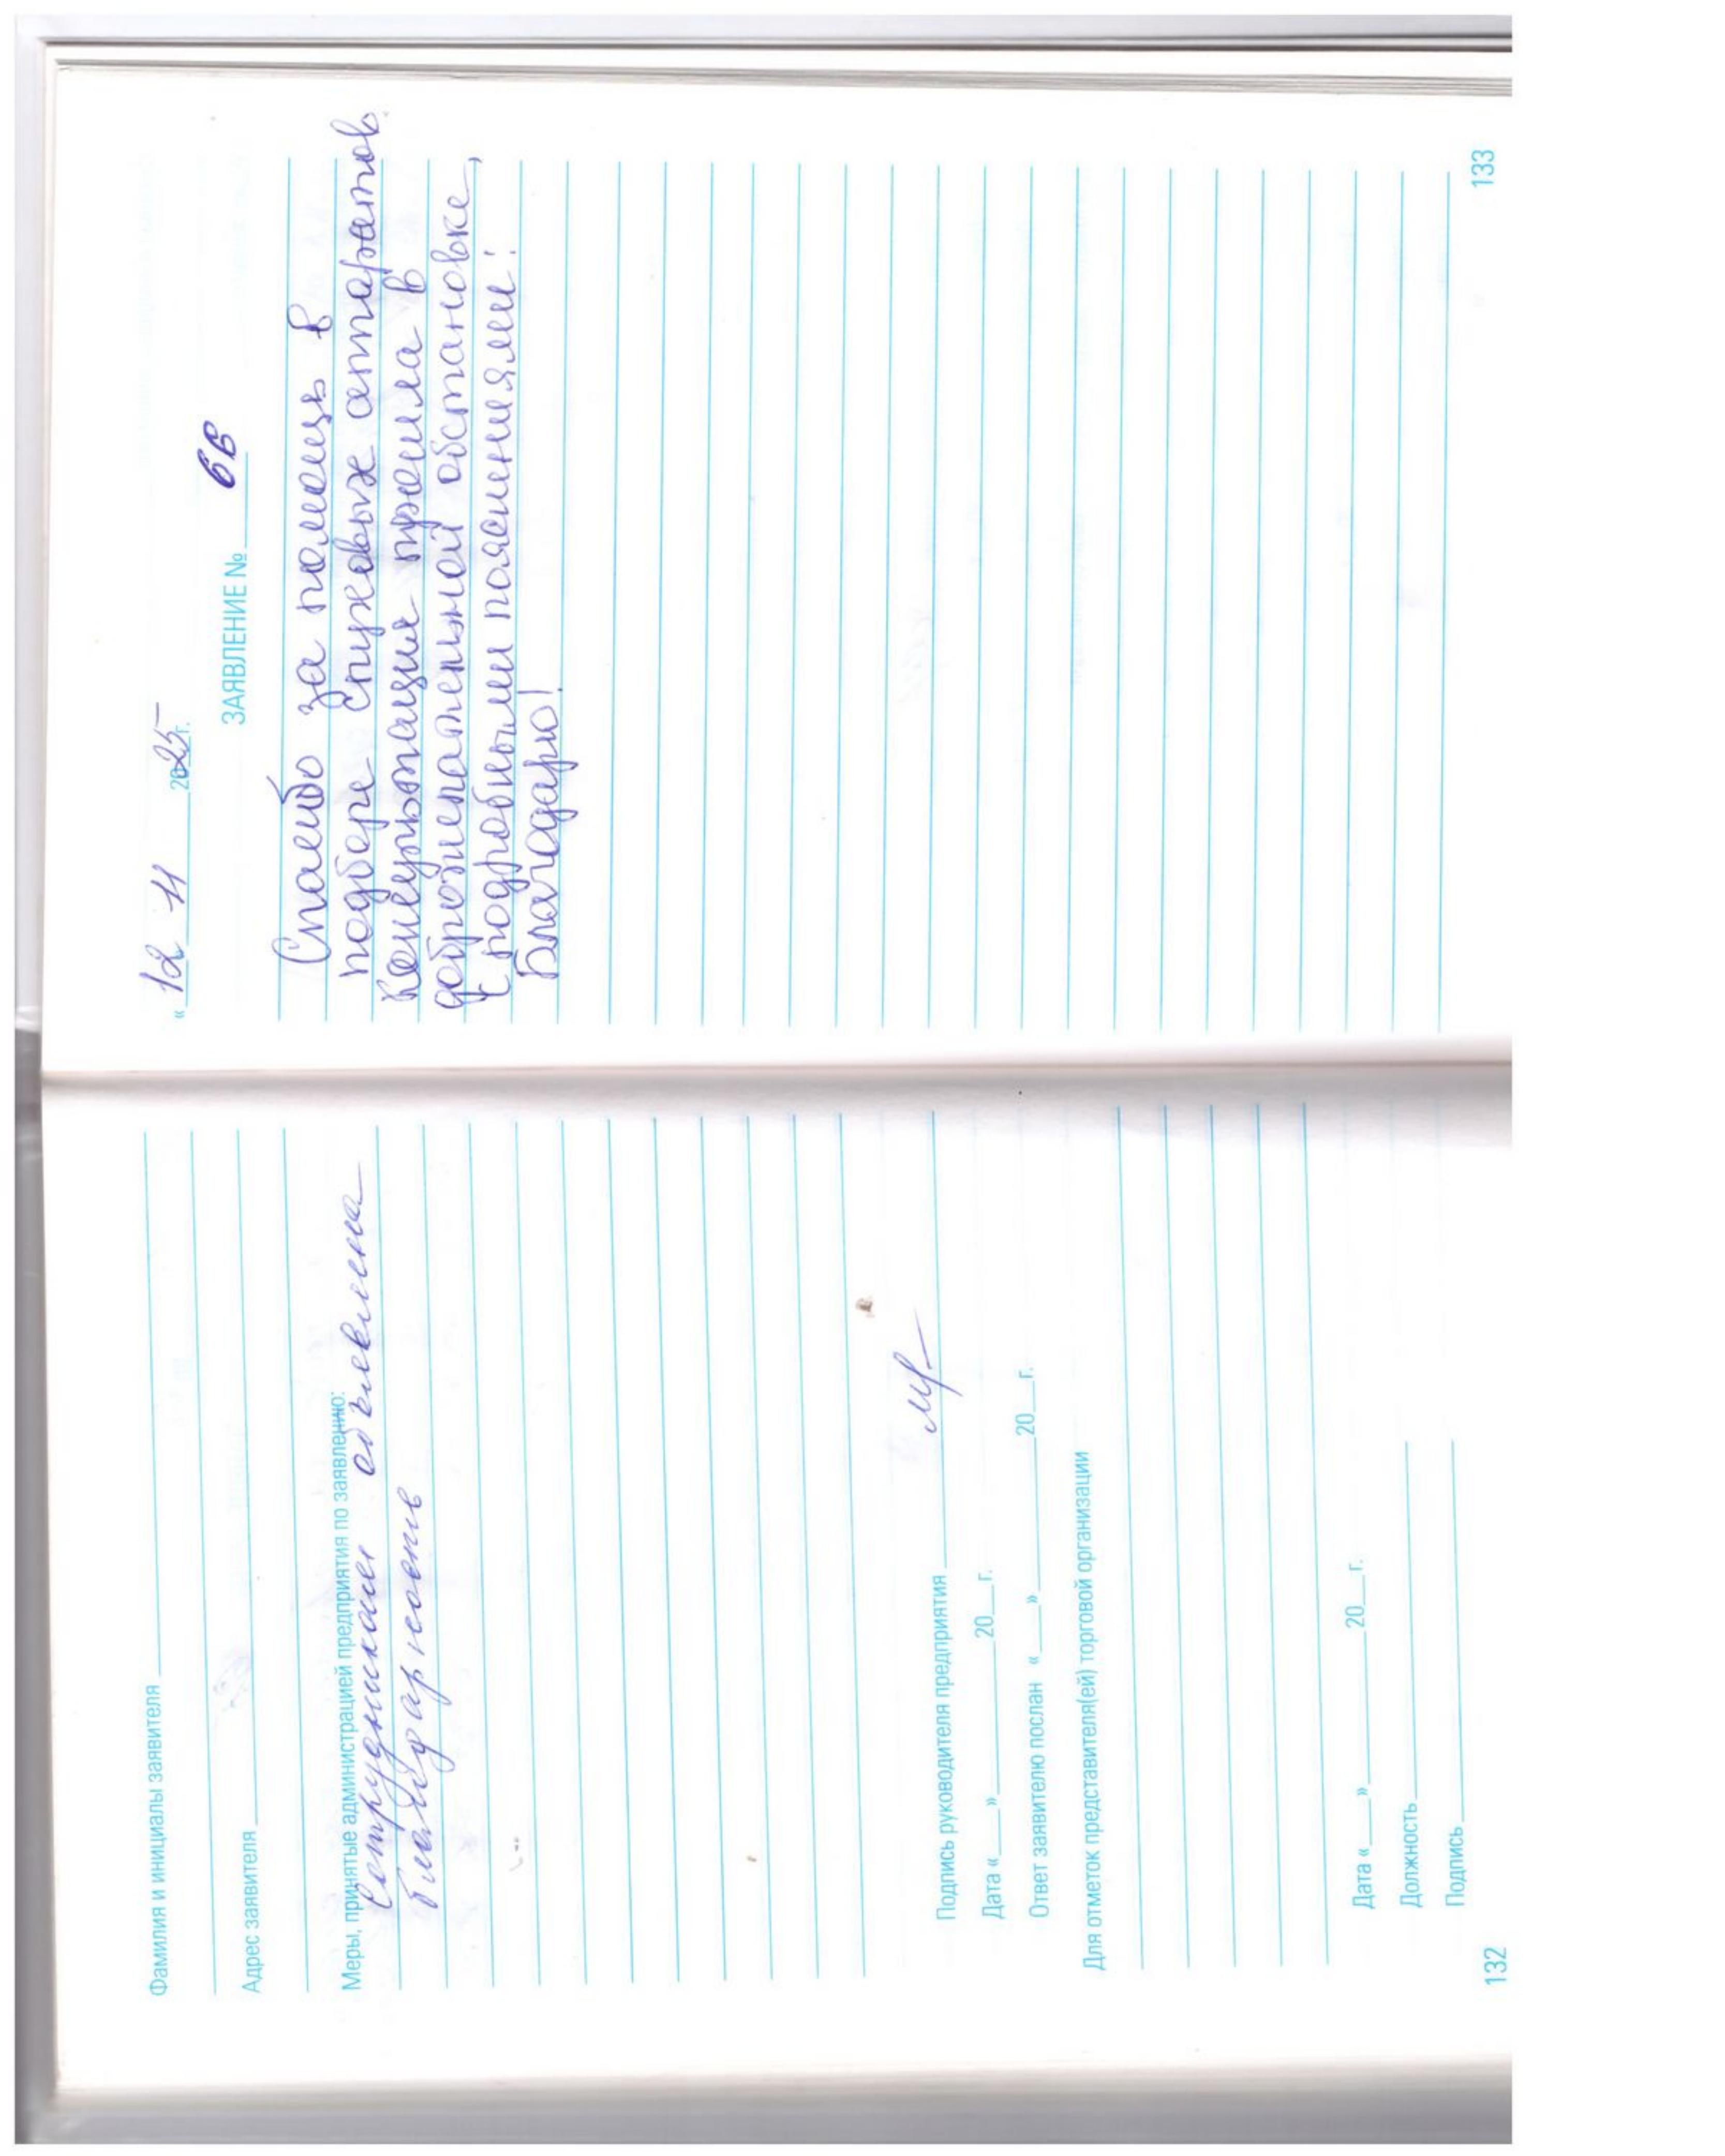 Фамилия и инициалы заявителя
Адрес заявителя
Меры, принятые администрацией предприятия по заявлению:
Сотрудникам объявлена
благодарность
Подпись руководителя предприятия
Дата «___»________20__г.
Ответ заявителю послан «___»________20__г.
Для отметок представителя(ей) торговой организации
Дата «___»________20__г.
Должность
Подпись
132
«12 11 2025 г.
ЗАЯВЛЕНИЕ № 66
Спасибо за помощь в
подборе слуховых аппаратов.
Консультация прошла в
доброжелательной обстановке,
с подробными пояснениями!
Благодарю!
133